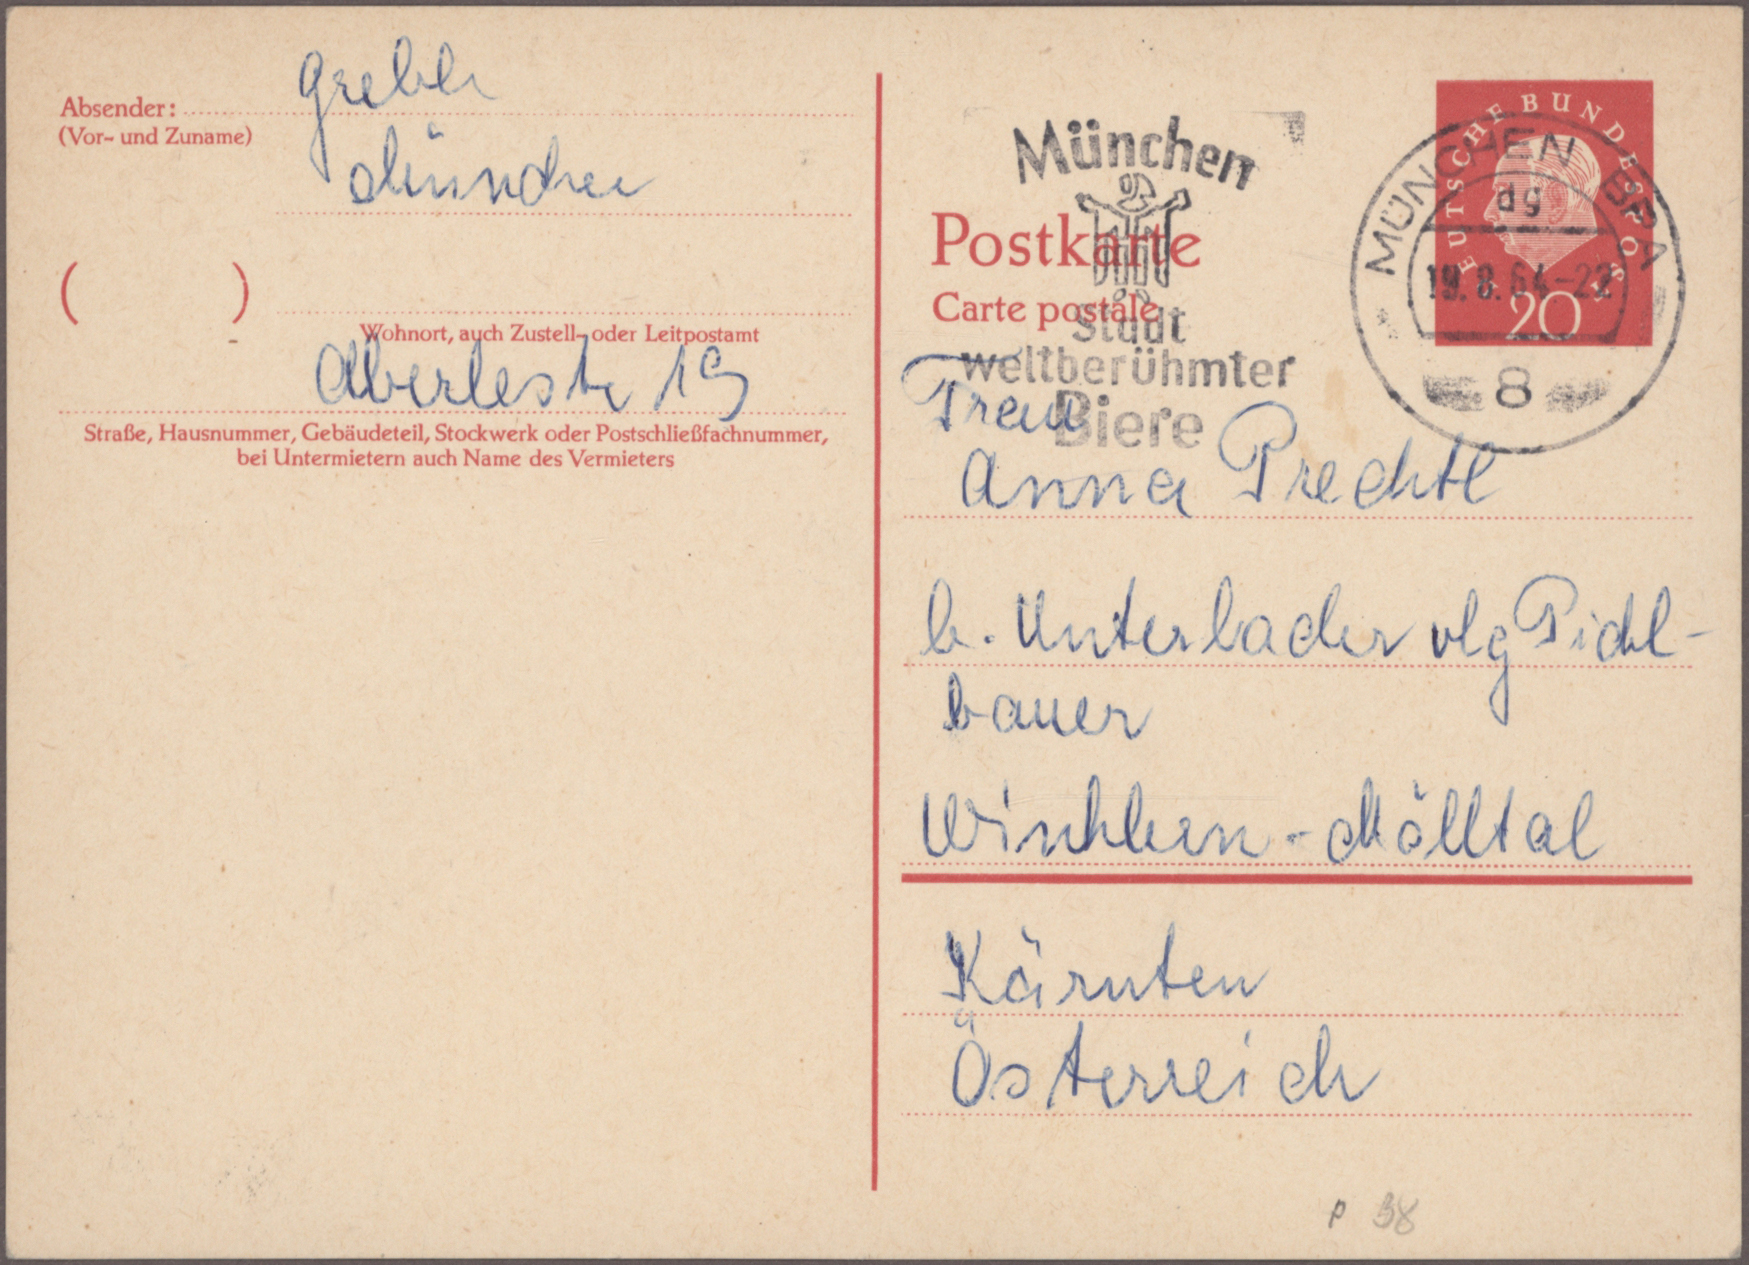 Greber
Absender:
(Vor- und Zuname)
München
(            )
Wohnort, auch Zustell- oder Leitpostamt
Aberlestr 19
Straße, Hausnummer, Gebäudeteil, Stockwerk oder Postschließfachnummer,
bei Untermietern auch Name des Vermieters
München
Stadt
weltberühmter
Biere
Postkarte
Carte postale
DEUTSCHE BUNDESPOST
20
MÜNCHEN BPA
dg
19.8.64-22
8
Frau
Anna Prechtl
b. Unterlader vlg Pichl-
bauer
Winklern - Mölltal
Kärnten
Österreich
P 38